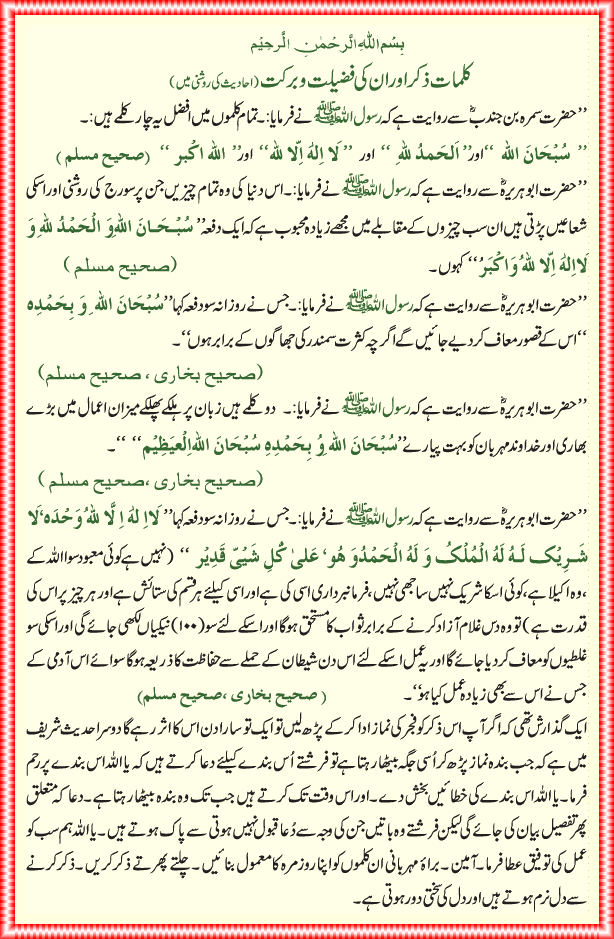 بِسْمِ اللہِ الرَّحْمٰنِ الرَّحِیْمِ
کلمات ذکر اور ان کی فضیلت و برکت (احادیث کی روشنی میں)
’’حضرت سمرہ بن جندبؓ سے روایت ہے کہ رسول اللہ ﷺ نے فرمایا:۔ تمام کلموں میں افضل یہ چار کلمے ہیں:۔
’’ سُبْحَانَ اللہ ‘‘ اور ’’ اَلحَمدُ لِلّٰہِ ‘‘ اور ’’ لَا اِلٰہَ اِلّا للہ ‘‘ اور ’’ اللہ اکْبر ‘‘ (صحیح مسلم)
’’حضرت ابو ہریرہؓ سے روایت ہے کہ رسول اللہ ﷺ نے فرمایا:۔ اس دنیا کی وہ تمام چیزیں جن پر سورج کی روشنی اور اسکی
شعاعیں پڑتی ہیں ان سب چیزوں کے مقابلے میں مجھے زیادہ محبوب ہے کہ ایک دفعہ ’’ سُبْحَانَ اللہِ وَ الْحَمْدُ لِلّٰہِ وَ
لَا اِلٰہَ اِلّا للہُ وَ اکْبَرُ ‘‘ کہوں۔ (صحیح مسلم)
’’حضرت ابو ہریرہؓ سے روایت ہے کہ رسول اللہ ﷺ نے فرمایا:۔ جس نے روزانہ سو دفعہ کہا ’’سُبْحَانَ اللہِ وَ بِحَمْدِہ
‘‘ اس کے قصور معاف کر دیے جائیں گے اگرچہ کثرت سمندر کی جھاگوں کے برابر ہوں‘‘۔
(صحیح بخاری ، صحیح مسلم)
’’حضرت ابو ہریرہؓ سے روایت ہے کہ رسول اللہ ﷺ نے فرمایا:۔ دو کلمے ہیں زبان پر ہلکے پھلکے میزان اعمال میں بڑے
بھاری اور خداوند مہربان کو بہت پیارے ’’سُبْحَانَ اللہِ وُ بِحَمْدِہِ سُبْحَانَ اللہِ الْعَظِیْم‘‘ ‘‘۔
(صحیح بخاری ،صحیح مسلم)
’’حضرت ابو ہریرہؓ سے روایت ہے کہ رسول اللہ ﷺ نے فرمایا:۔ جس نے روزانہ سو دفعہ کہا ’’ لَا اِلٰہَ اِلَّا للہُ وَحْدَہٗ لَا
شَرِیْکَ لَہُ لَہُ الْمُلْکُ وَ لَہُ الْحَمْدُ وَ ھُوَ عَلیٰ کُلِ شَیْئٍ قَدِیْر ‘‘ (نہیں ہے کوئی معبود سوا اللہ کے
،وہ اکیلا ہے، کوئی اسکا شریک نہیں ساجھی نہیں، فرمانبرداری اسی کی ہے اور اسی کیلئے ہر قسم کی ستائش ہے اور ہر چیز پر اس کی
قدرت ہے) تو وہ دس غلام آزاد کرنے کے برابر ثواب کا مستحق ہوگا اور اسکے لئے سو (۱۰۰) نیکیاں لکھی جائے گی اور اسکی سو
غلطیوں کو معاف کر دیا جائے گا اور یہ عمل اسکے لئے اس دن شیطان کے حملے سے حفاظت کا ذریعہ ہوگا سوائے اس آدمی کے
جس نے اس سے بھی زیادہ عمل کیا ہو‘‘۔ ( صحیح بخاری ،صحیح مسلم)
ایک گذارش تھی کہ اگر آپ اس ذکر کو فجر کی نماز ادا کر کے پڑھ لیں تو ایک تو سارا دن اس کا اثر رہے گا دوسرا حدیث شریف
میں ہے کہ جب بندہ نماز پڑھ کر اُسی جگہ بیٹھا رہتا ہے تو فرشتے اُس بندے کیلئے دعا کرتے ہیں کہ یا اللہ اس بندے پر رحم
فرما۔ یا اللہ اس بندے کی خطائیں بخش دے۔ اور اس وقت تک کرتے ہیں جب تک وہ بندہ بیٹھا رہتا ہے۔ دعا کہ متعلق
پھر تفصیل بیان کی جائے گی لیکن فرشتے وہ باتیں جن کی وجہ سے دُعا قبول نہیں ہوتی سے پاک ہوتے ہیں۔ یا اللہ ہم سب کو
عمل کی توفیق عطا فرما۔ آمین۔ براہ مہربانی ان کلموں کو اپنا روز مرہ کا معمول بنائیں۔ چلتے پھرتے ذکر کریں۔ ذکر کرنے
سے دل نرم ہوتے ہیں اور دل کی سختی دور ہوتی ہے۔